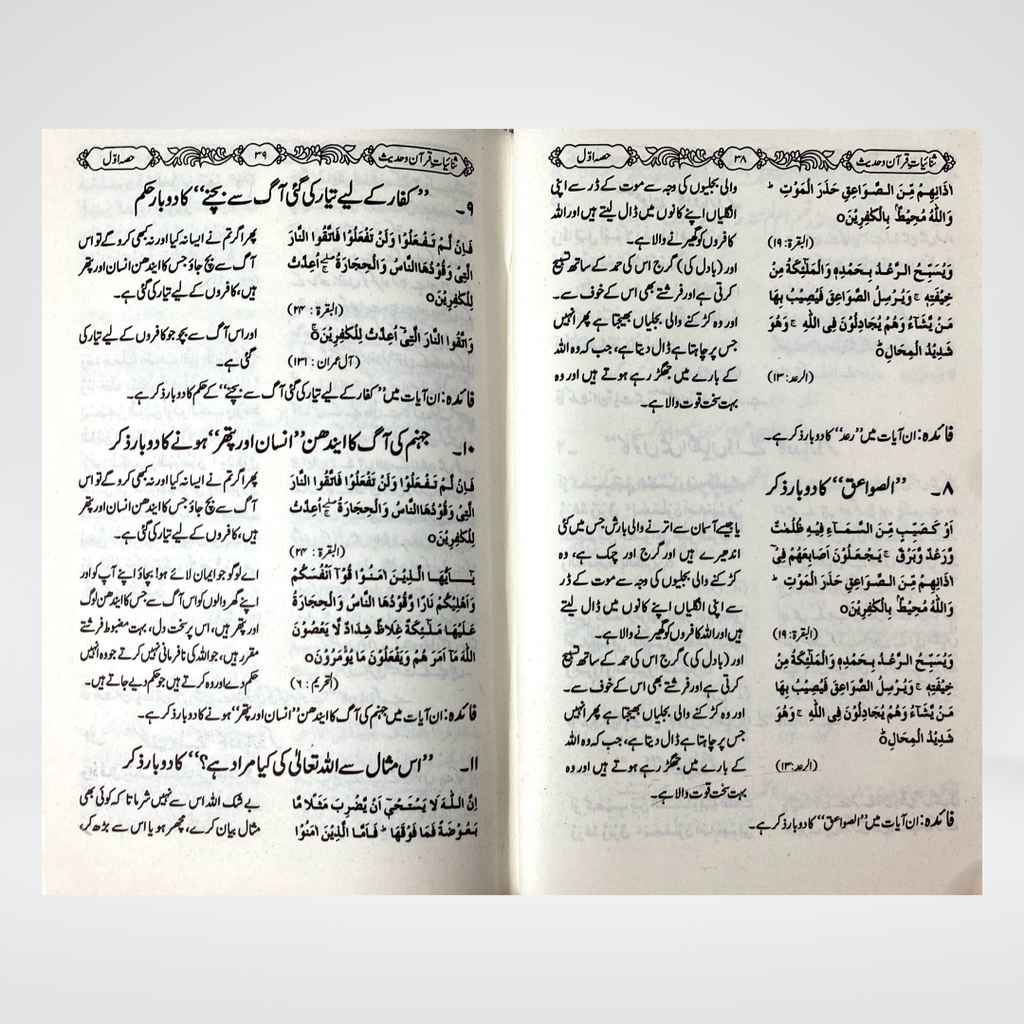 ثنائیاتِ قرآن و حدیث ۳۸ حصہ اوّل
اٰذَانِهِمْ مِّنَ الصَّوَاعِقِ حَذَرَ الْمَوْتِ ؕ
وَاللّٰهُ مُحِيْطٌۢ بِالْكٰفِرِيْنَ۝
(البقرۃ: ۱۹)
والی بجلیوں کی وجہ سے موت کے ڈر سے اپنی
انگلیاں اپنے کانوں میں ڈال لیتے ہیں اور اللہ
کافروں کو گھیرنے والا ہے۔
وَيُسَبِّحُ الرَّعْدُ بِحَمْدِهٖ وَالْمَلٰٓئِكَةُ مِنْ
خِيْفَتِهٖ ۚ وَيُرْسِلُ الصَّوَاعِقَ فَيُصِيْبُ بِهَا
مَنْ يَّشَآءُ وَهُمْ يُجَادِلُوْنَ فِى اللّٰهِ ۚ وَهُوَ
شَدِيْدُ الْمِحَالِ۝ؕ
(الرعد: ۱۳)
اور (بادل کی) گرج اس کی حمد کے ساتھ تسبیح
کرتی ہے اور فرشتے بھی اس کے خوف سے۔
اور وہ کڑکنے والی بجلیاں بھیجتا ہے پھر انہیں
جس پر چاہتا ہے ڈال دیتا ہے، جب کہ وہ اللہ
کے بارے میں جھگڑ رہے ہوتے ہیں اور وہ
بہت سخت قوت والا ہے۔
فائدہ: ان آیات میں ”رعد“ کا دو بار ذکر ہے۔
۸۔ ”الصواعق“ کا دو بار ذکر
اَوْ كَصَيِّبٍ مِّنَ السَّمَآءِ فِيْهِ ظُلُمٰتٌ
وَّرَعْدٌ وَّبَرْقٌ ۚ يَجْعَلُوْنَ اَصَابِعَهُمْ فِىْٓ
اٰذَانِهِمْ مِّنَ الصَّوَاعِقِ حَذَرَ الْمَوْتِ ؕ
وَاللّٰهُ مُحِيْطٌۢ بِالْكٰفِرِيْنَ۝
(البقرۃ: ۱۹)
یا جیسے آسمان سے اترنے والی بارش جس میں کئی
اندھیرے ہیں اور گرج اور چمک ہے، وہ
کڑکنے والی بجلیوں کی وجہ سے موت کے ڈر
سے اپنی انگلیاں اپنے کانوں میں ڈال لیتے
ہیں اور اللہ کافروں کو گھیرنے والا ہے۔
وَيُسَبِّحُ الرَّعْدُ بِحَمْدِهٖ وَالْمَلٰٓئِكَةُ مِنْ
خِيْفَتِهٖ ۚ وَيُرْسِلُ الصَّوَاعِقَ فَيُصِيْبُ بِهَا
مَنْ يَّشَآءُ وَهُمْ يُجَادِلُوْنَ فِى اللّٰهِ ۚ وَهُوَ
شَدِيْدُ الْمِحَالِ۝ؕ
(الرعد: ۱۳)
اور (بادل کی) گرج اس کی حمد کے ساتھ تسبیح
کرتی ہے اور فرشتے بھی اس کے خوف سے۔
اور وہ کڑکنے والی بجلیاں بھیجتا ہے پھر انہیں
جس پر چاہتا ہے ڈال دیتا ہے، جب کہ وہ اللہ
کے بارے میں جھگڑ رہے ہوتے ہیں اور وہ
بہت سخت قوت والا ہے۔
فائدہ: ان آیات میں ”الصواعق“ کا دو بار ذکر ہے۔
ثنائیاتِ قرآن و حدیث ۳۹ حصہ اوّل
۹۔ ”کفار کے لیے تیار کی گئی آگ سے بچنے“ کا دو بار حکم
فَاِنْ لَّمْ تَفْعَلُوْا وَلَنْ تَفْعَلُوْا فَاتَّقُوا النَّارَ
الَّتِىْ وَقُوْدُهَا النَّاسُ وَالْحِجَارَةُ ۖۚ اُعِدَّتْ
لِلْكٰفِرِيْنَ۝
(البقرۃ: ۲۴)
پھر اگر تم نے ایسا نہ کیا اور نہ کبھی کرو گے تو اس
آگ سے بچ جاؤ جس کا ایندھن انسان اور پتھر
ہیں، کافروں کے لیے تیار کی گئی ہے۔
وَاتَّقُوا النَّارَ الَّتِىْٓ اُعِدَّتْ لِلْكٰفِرِيْنَ۝ۚ
(آل عمران: ۱۳۱)
اور اس آگ سے بچو جو کافروں کے لیے تیار کی
گئی ہے۔
فائدہ: ان آیات میں ”کفار کے لیے تیار کی گئی آگ سے بچنے“ کے حکم کا دو بار ذکر ہے۔
۱۰۔ جہنم کی آگ کا ایندھن ”انسان اور پتھر“ ہونے کا دو بار ذکر
فَاِنْ لَّمْ تَفْعَلُوْا وَلَنْ تَفْعَلُوْا فَاتَّقُوا النَّارَ
الَّتِىْ وَقُوْدُهَا النَّاسُ وَالْحِجَارَةُ ۖۚ اُعِدَّتْ
لِلْكٰفِرِيْنَ۝
(البقرۃ: ۲۴)
پھر اگر تم نے ایسا نہ کیا اور نہ کبھی کرو گے تو اس
آگ سے بچ جاؤ جس کا ایندھن انسان اور پتھر
ہیں، کافروں کے لیے تیار کی گئی ہے۔
يٰٓاَيُّهَا الَّذِيْنَ اٰمَنُوْا قُوْٓا اَنْفُسَكُمْ
وَاَهْلِيْكُمْ نَارًا وَّقُوْدُهَا النَّاسُ وَالْحِجَارَةُ
عَلَيْهَا مَلٰٓئِكَةٌ غِلَاظٌ شِدَادٌ لَّا يَعْصُوْنَ
اللّٰهَ مَآ اَمَرَهُمْ وَيَفْعَلُوْنَ مَا يُؤْمَرُوْنَ۝
(التحریم: ۶)
اے لوگو جو ایمان لائے ہو! بچاؤ اپنے آپ کو اور
اپنے گھر والوں کو اس آگ سے جس کا ایندھن لوگ
اور پتھر ہیں، اس پر سخت دل، بہت مضبوط فرشتے
مقرر ہیں، جو اللہ کی نافرمانی نہیں کرتے جو وہ انہیں
حکم دے اور وہ کرتے ہیں جو حکم دیے جاتے ہیں۔
فائدہ: ان آیات میں جہنم کی آگ کا ایندھن ”انسان اور پتھر“ ہونے کا دو بار ذکر ہے۔
۱۱۔ ”اس مثال سے اللہ تعالیٰ کی کیا مراد ہے؟“ کا دو بار ذکر
اِنَّ اللّٰهَ لَا يَسْتَحْىٖٓ اَنْ يَّضْرِبَ مَثَلًا مَّا
بَعُوْضَةً فَمَا فَوْقَهَا ؕ فَاَمَّا الَّذِيْنَ اٰمَنُوْا
بے شک اللہ اس سے نہیں شرماتا کہ کوئی بھی
مثال بیان کرے، مچھر ہو یا اس سے بڑھ کر،